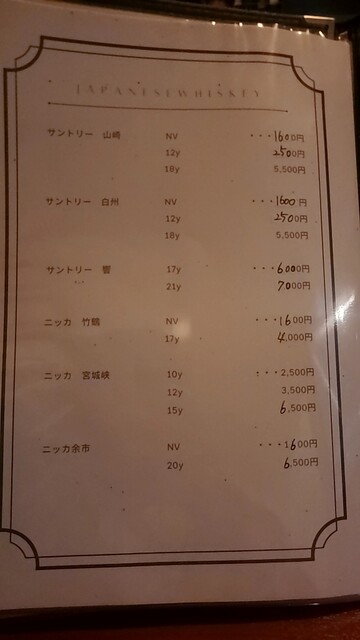 JAPANESE WHISKEY
サントリー 山崎 NV ・・・1600円
12y 2500円
18y 5,500円
サントリー 白州 NV ・・・1600円
12y 2500円
18y 5,500円
サントリー 響 17y ・・・6000円
21y 7000円
ニッカ 竹鶴 NV ・・・1600円
17y 4,000円
ニッカ 宮城峡 10y ・・・2,500円
12y 3,500円
15y 6,500円
ニッカ余市 NV ・・・1600円
20y 6,500円